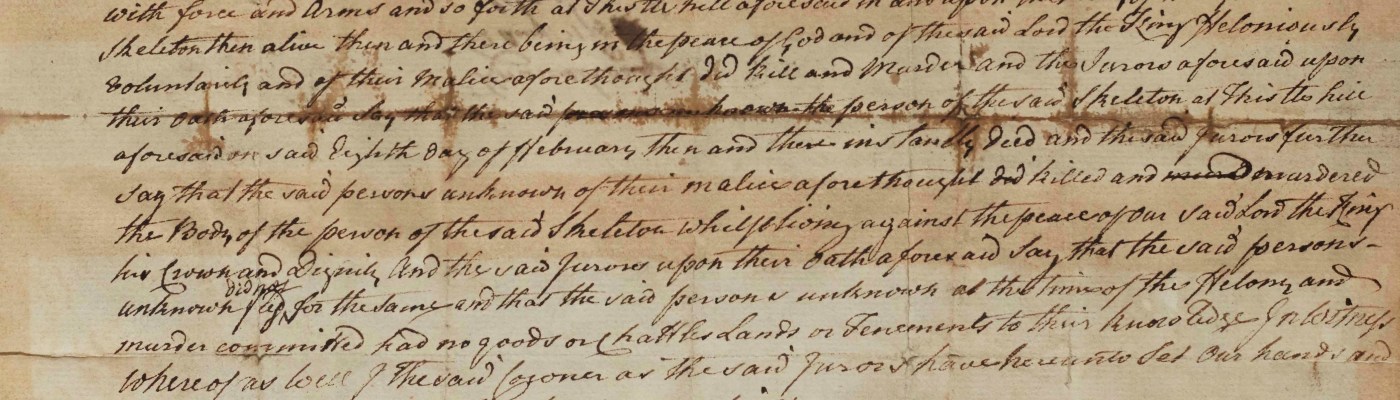 with force and Arms and so forth at Thistle hill aforesaid in and upon
Skeleton then alive then and there being in the peace of God and of the said Lord the King Feloniously
Voluntarily and of their Malice aforethought did kill and Murder and the Jurors aforesaid upon
their oath aforesaid Say that the said person of the said Skeleton at Thistle hill
aforesaid on said Eighth day of February then and there instantly died and the said Jurors further
Say that the said persons unknown of their malice aforethought did killed and murdered
the Body of the person of the said Skeleton whilst living against the peace of our said Lord the King
his Crown and Dignity And the said Jurors upon their oath aforesaid Say that the said persons-
unknown did not fly for the same and that the said persons unknown at the time of the Felony and
murder committed had no goods or Chattles Lands or Tenements to their knowledge In Witness
Whereof as well I the said Coroner as the said Jurors have hereunto Set our hands and